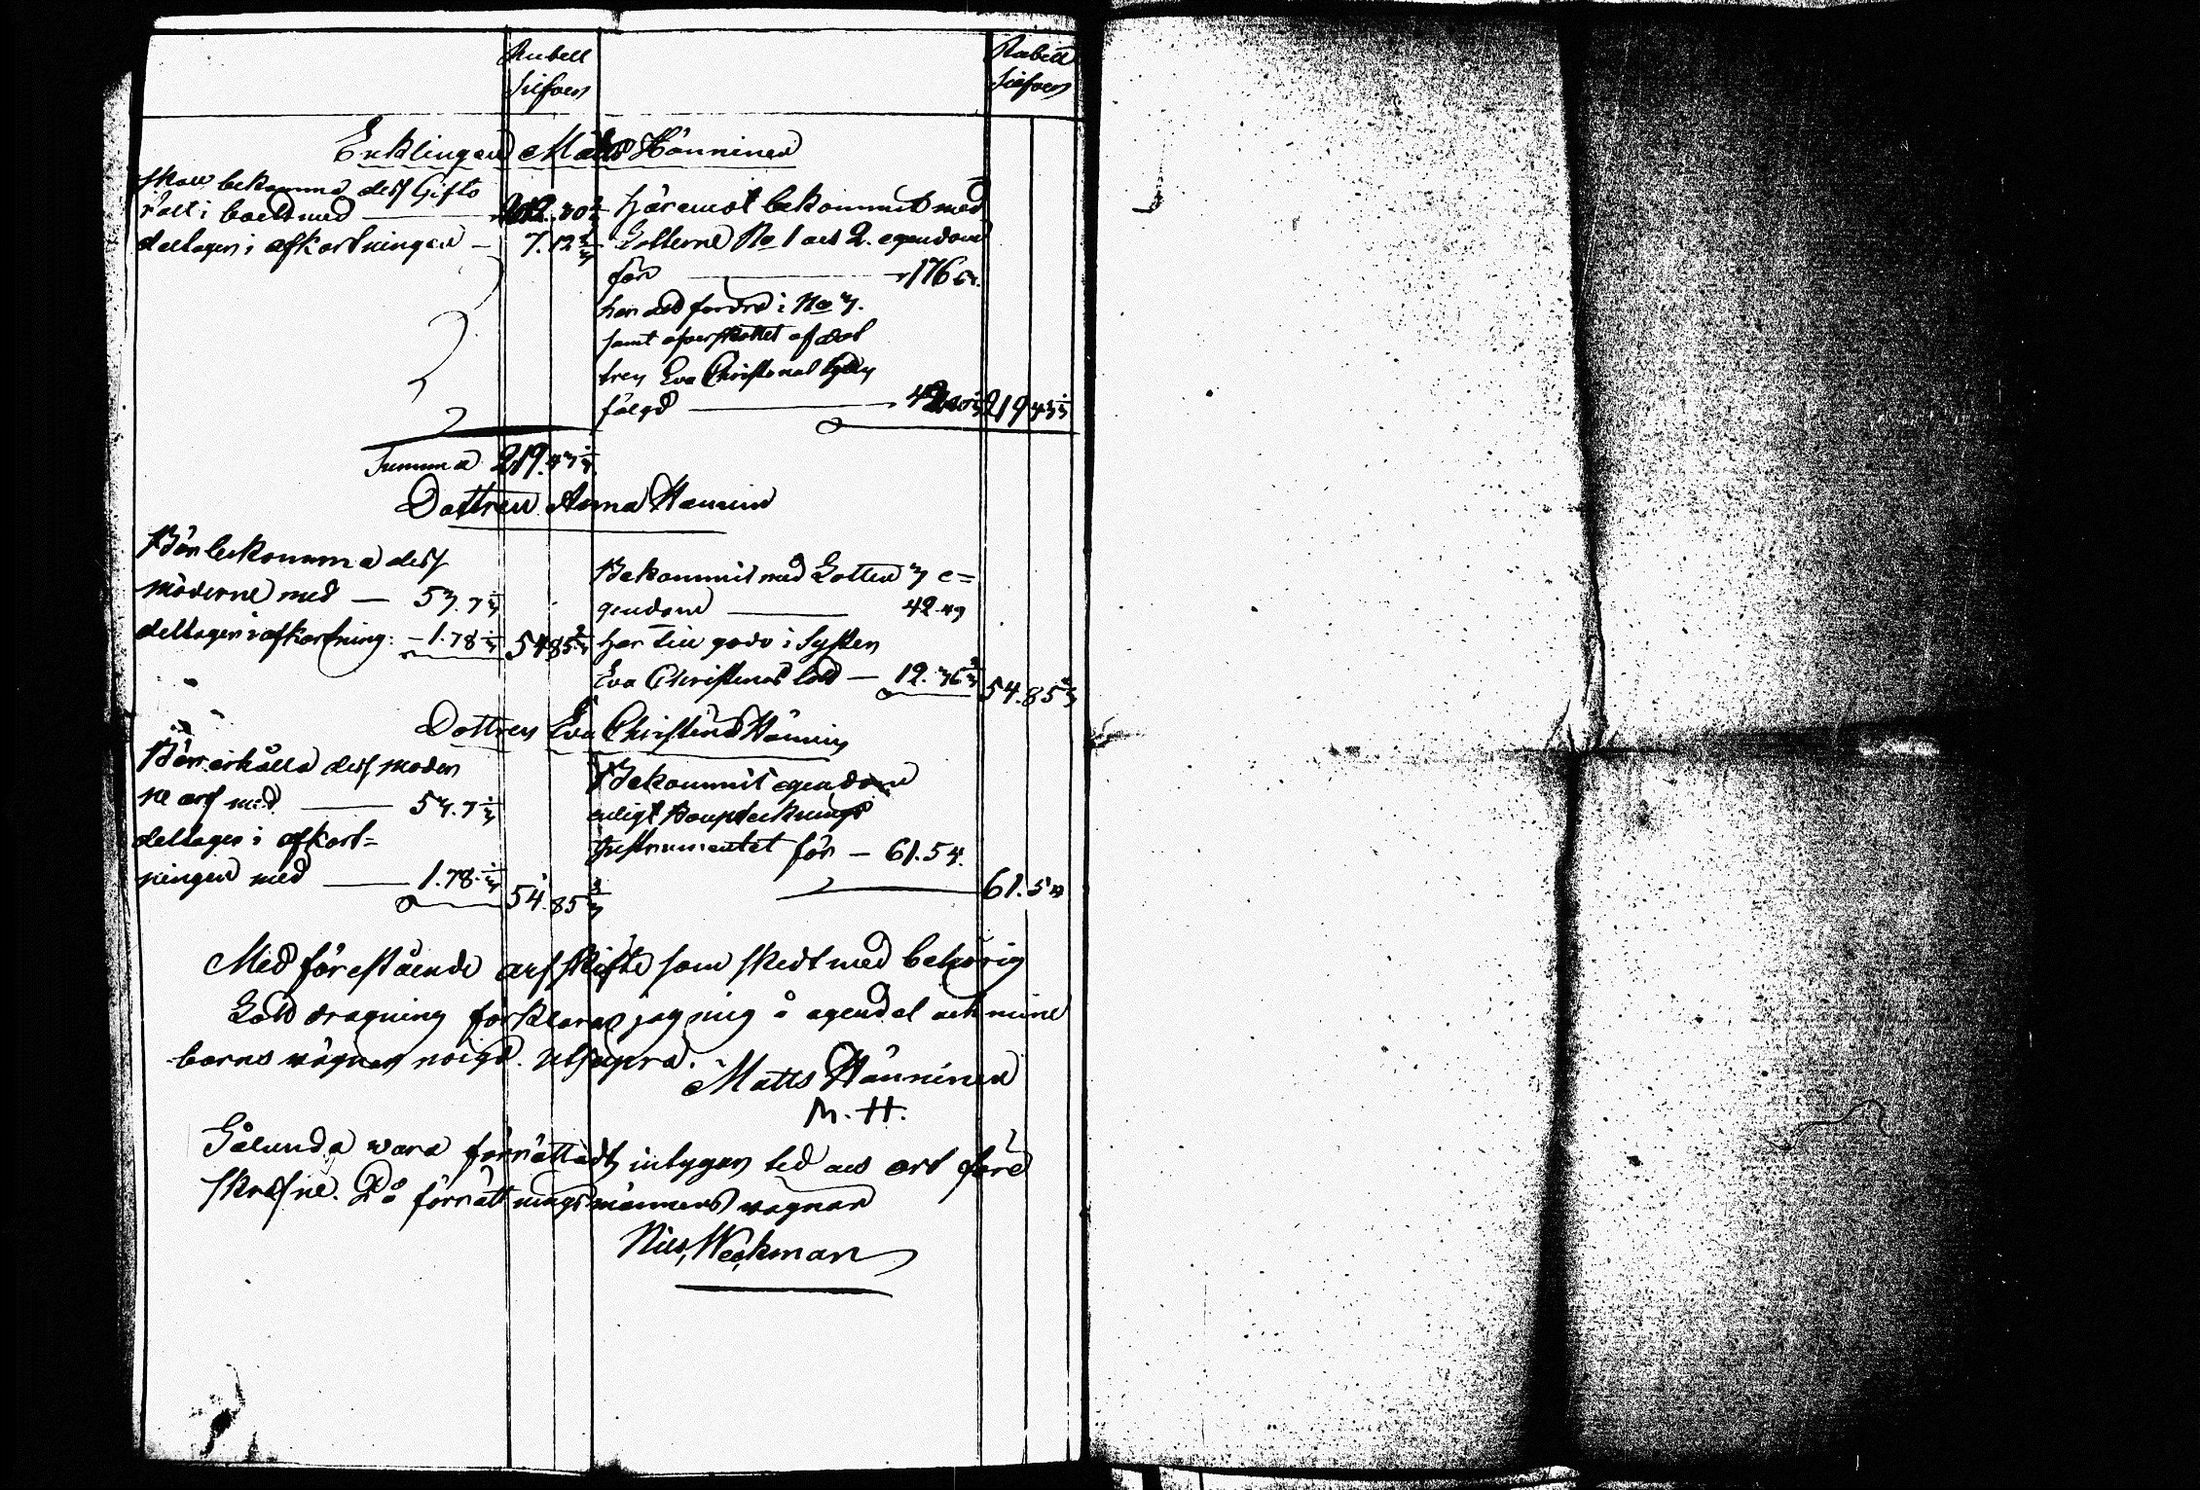 Rubell
Silfver
Rubell
Silfver
Enklingen Matts Hänninen
skall bekomma dess Gifto
rätt i boet med — 212.30 2/3
deltagen i afkortningen — 7.12 2/3
häremot bekommit med
Lotterne No 1 och 2. egendom
för — 176
har att fordra i No 3.
samt öfverskottet af dot
tren Eva Christinas
följd — 219 43 1/3
Summa 219.43 1/3
Dottren Anna Hännin
Bör bekomma dess
möderne med — 53.7 1/3
deltagen i afkortning: — 1.78 1/3 54 85 2/3
Bekommit med Lotten 3 e=
gendom — 42.49
har till godo i Systen
Eva Christinas lott — 12.36 2/3 54.85 2/3
Dottren Eva Christina Hännin
Bör erhålla dess moder
ne arf med — 53.7 1/3
deltagen i afkort=
ningen med — 1.78 1/3 54.85 2/3
Bekommit egendom
enligt Boupptecknings
Instrumentet för — 61.54.
61.54
Med förestående arfskifte som skedt med behörig
Lottdragning förklarar jag mig å egen del och mine
barns vägnar nöigd. Utsupra.
Matts Hänninen
M. H.
Sålunda vara förrättadt, intygar tid och ort före
skrefne. På förrättningsmännens vägnar
Nils Weckman